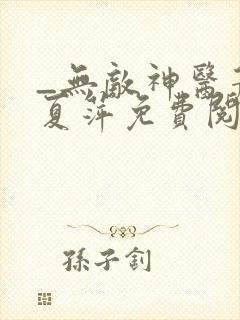 _無敵神醫
夏萍免費閱
孫子釗